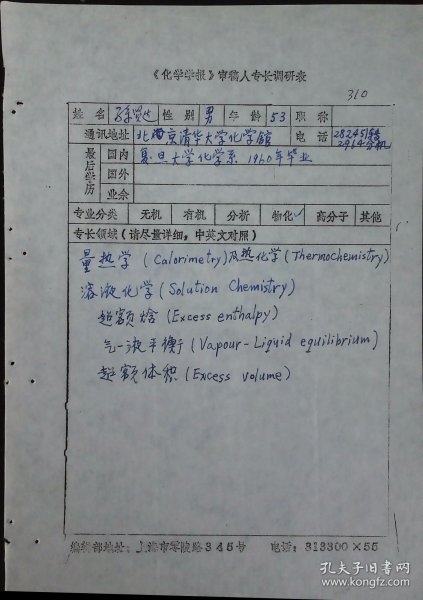 《化学学报》审稿人专长调研表
310
姓名 性别 男 年龄 53 职称
通讯地址 北京清华大学化学馆 电话 282451转
2964分机
最后学历 国内 复旦大学化学系 1960年毕业
国外
业余
专业分类 无机 有机 分析 物化✓ 高分子 其他
专长领域(请尽量详细,中英文对照)
量热学 (Calorimetry)及热化学 (Thermochemistry)
溶液化学 (Solution Chemistry)
超额焓 (Excess enthalpy)
气-液平衡 (Vapour-Liquid equilibrium)
超额体积 (Excess volume)
编辑部地址:上海市零陵路345号 电话:313300×55
孔夫子旧书网
www.kongfz.com